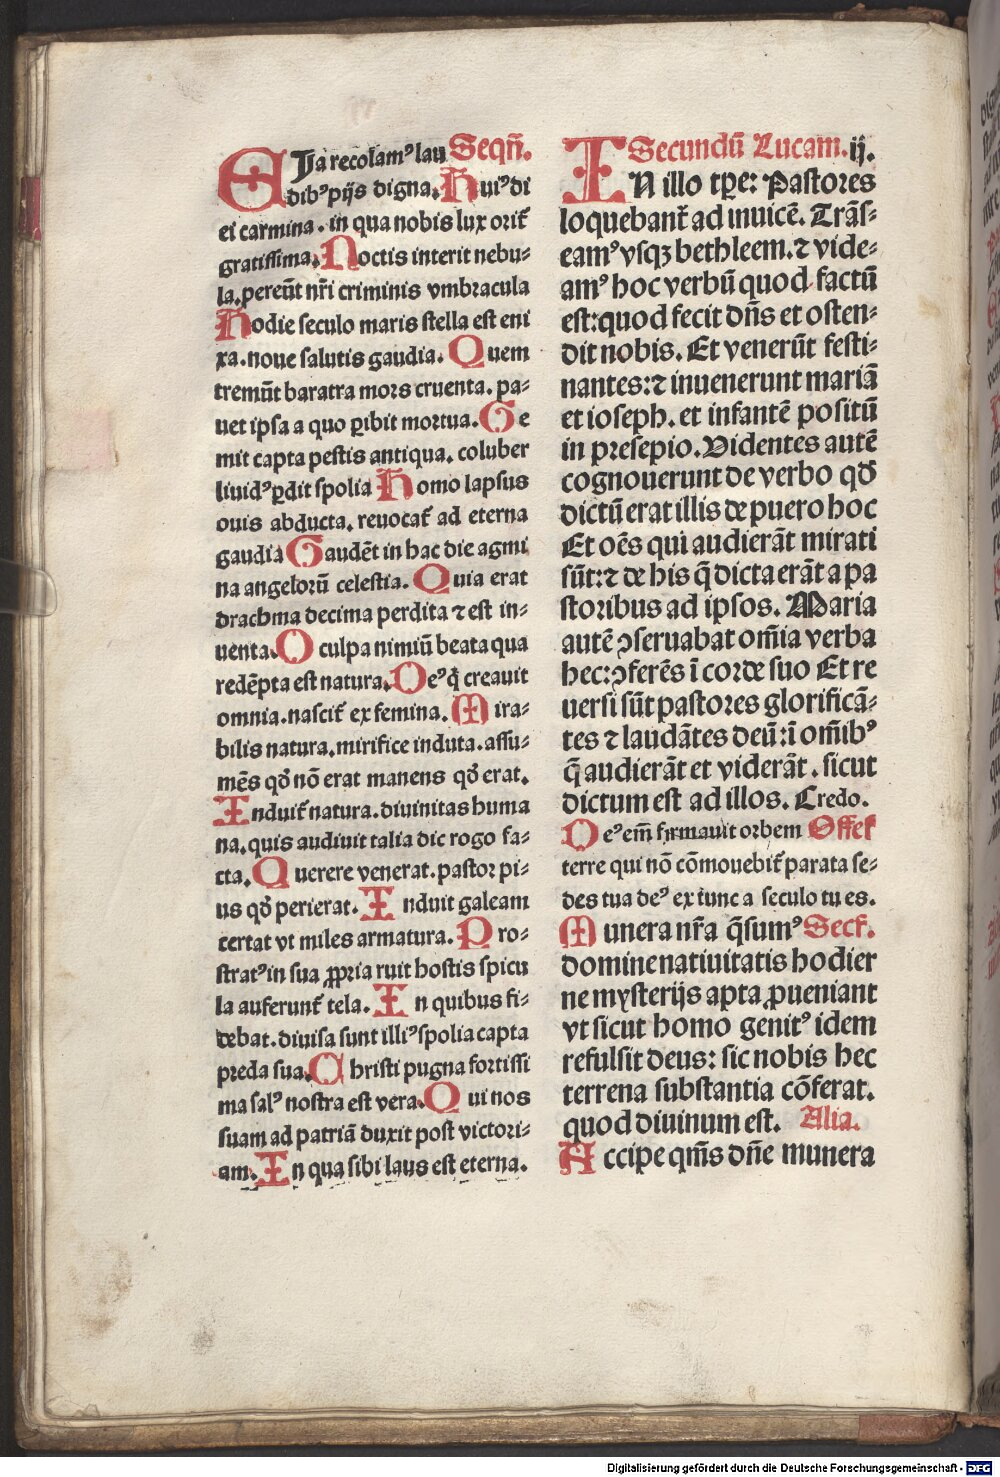 EIa recolam⁹ lau Seqñ.
dib⁹ pijs digna. Hui⁹ di
ei carmina. in qua nobis lux orit̃
gratissima. Noctis interit nebu⸗
la. pereũt nr̃i criminis vmbracula
Hodie seculo maris stella est eni
xa. noue salutis gaudia. Quem
tremũt baratra mors cruenta. pa⸗
uet ipsa a quo ꝑibit mortua. Ge
mit capta pestis antiqua. coluber
liuid⁹ ꝑdit spolia Homo lapsus
ouis abducta. reuocat̃ ad eterna
gaudia Gaudẽt in hac die agmi
na angelorũ celestia. Quia erat
drachma decima perdita ⁊ est in⸗
uenta. O culpa nimiũ beata qua
redẽpta est natura. De⁹ q̇ creauit
omnia. nascit̃ ex femina. Mira⸗
bilis natura. mirifice induta. assu⸗
mẽs qđ nõ erat manens qđ erat.
Induit̃ natura. diuinitas huma
na. quis audiuit talia dic rogo fa⸗
cta. Querere venerat. pastor pi⸗
us qđ perierat. Induit galeam
certat vt miles armatura. Pro⸗
strat⁹ in sua ꝓpria ruit hostis spicu
la auferunt̃ tela. In quibus fi⸗
debat. diuisa sunt illi⁹ spolia capta
preda sua. Christi pugna fortissi
ma sal⁹ nostra est vera. Qui nos
suam ad patriã duxit post victori⸗
am. In qua sibi laus est eterna.
Secundũ Lucam. ij.
IN illo tꝑe: Pastores
loquebant̃ ad inuicẽ. Trãs⸗
eam⁹ vsqꝫ bethleem. ⁊ vide⸗
am⁹ hoc verbũ quod factũ
est: quod fecit dñs et osten⸗
dit nobis. Et venerũt festi⸗
nantes: ⁊ inuenerunt mariã
et ioseph. et infantẽ positũ
in presepio. Videntes autẽ
cognouerunt de verbo qđ
dictũ erat illis de puero hoc
Et oẽs qui audierãt mirati
sũt: ⁊ de his q̃ dicta erãt a pa
storibus ad ipsos. Maria
autẽ ↄseruabat om̃ia verba
hec: ↄferẽs ĩ corde suo Et re
uersi sũt pastores glorificã⸗
tes ⁊ laudãtes deũ: ĩ om̃ib⁹
q̃ audierãt et viderãt. sicut
dictum est ad illos. Credo.
De⁹ eñi firmauit orbem Offeŕ
terre qui nõ cõmouebit̃ parata se⸗
des tua de⁹ ex tunc a seculo tu es.
Munera nr̃a q̃sum⁹ Secŕ.
domine natiuitatis hodier
ne mysterijs apta ꝓueniant
vt sicut homo genit⁹ idem
refulsit deus: sic nobis hec
terrena substantia cõferat.
quod diuinum est. Alia.
Accipe qm̃s dñe munera
Digitalisierung gefördert durch die Deutsche Forschungsgemeinschaft - DFG